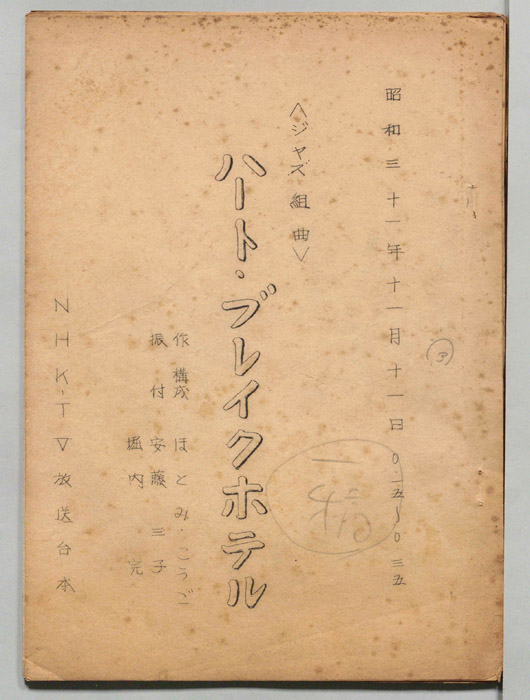 昭和三十一年十一月十一日 〇.一五〜〇三五
〈ジャズ組曲〉
ハート・ブレイクホテル
作 構成 ほとみ・こうご
振付 安藤三子
堀内 完
NHK-TV放送台本
一稿